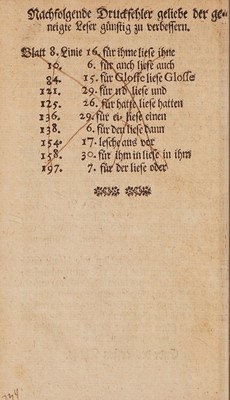 Nachfolgende Druckfehler geliebe der ge-
neigte Leser günstig zu verbessern.
Blatt 8. Linie 16. für ihme liese ihne
10. 6. für auch liese auch
84. 15. für Glosse liese Glosse
121. 29. für ud liese und
125. 26. für hatte liese hatten
136. 29. für ei- liese einen
138. 6. für den liese dann
154. 17. lesche aus vor
158. 30. für ihm in liese in ihm
197. 7. für der liese oder